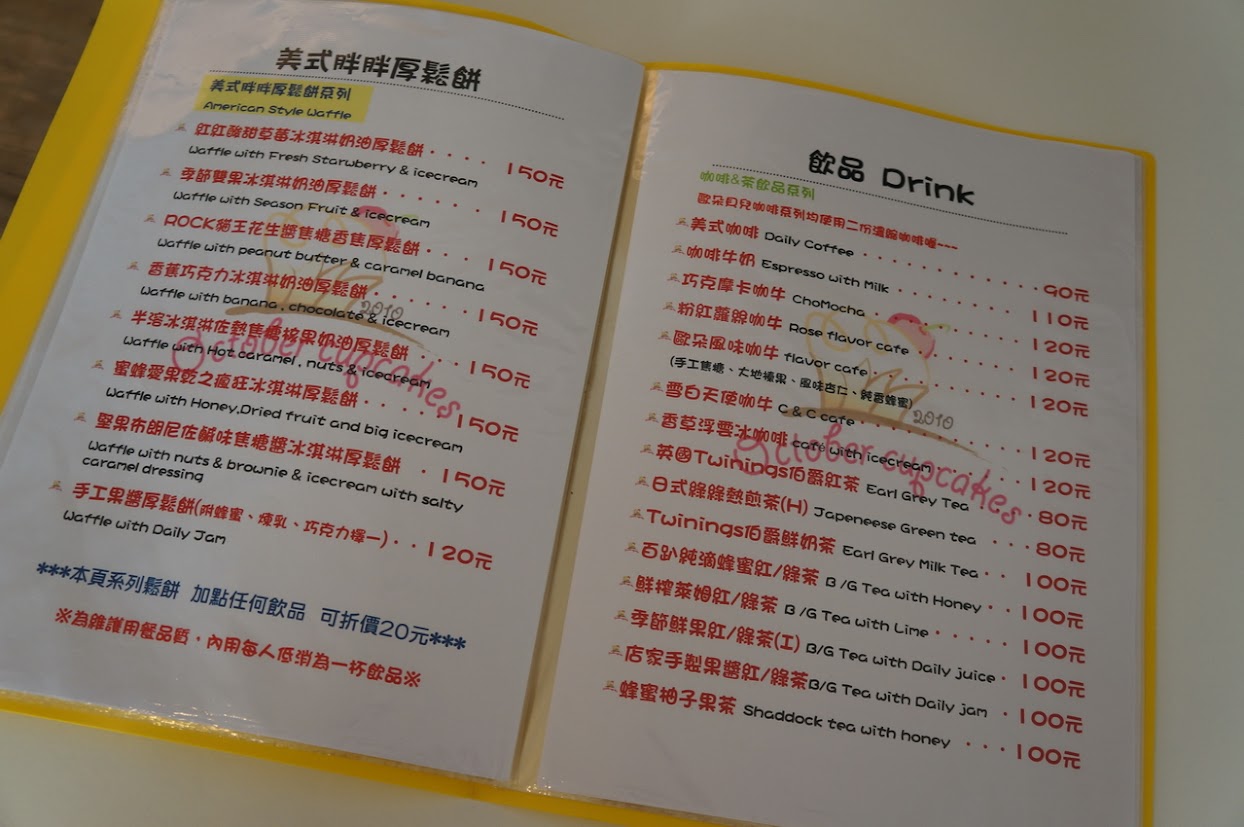 美式胖胖厚鬆餅
美式胖胖厚鬆餅系列
American Style Waffle
紅紅酸甜草莓冰淇淋奶油厚鬆餅・・・・150元
Waffle with Fresh Staruberry & icecream
季節雙果冰淇淋奶油厚鬆餅・・・・・・150元
Waffle with Season Fruit & icecream
ROCK貓王花生醬焦糖香蕉厚鬆餅・・・・150元
Waffle with peanut butter & caramel banana
香蕉巧克力冰淇淋奶油厚鬆餅・・・・・・150元
Waffle with banana , chocolate & icecream
半溶冰淇淋佐熱焦糖核果奶油厚鬆餅・・・・150元
Waffle with Hot caramel , nuts & icecream
蜜蜂愛果乾之瘋狂冰淇淋厚鬆餅・・・・・150元
Waffle with Honey,Dried fruit and big icecream
堅果布朗尼佐鹹味焦糖醬冰淇淋厚鬆餅 ・150元
Waffle with nuts & brownie & icecream with salty
caramel dressing
手工果醬厚鬆餅(附蜂蜜、煉乳、巧克力擇一)・・120元
Waffle with Daily Jam
***本頁系列鬆餅 加點任何飲品 可折價20元***
※為維護用餐品質，內用每人低消為一杯飲品※
2010
October cupcakes
飲品 Drink
咖啡&茶飲品系列
歐朵貝兒咖啡系列均使用二份濃縮咖啡喔~~~
美式咖啡 Daily Coffee・・・・・・・・・・・90元
咖啡牛奶 Espresso with Milk・・・・・・・・110元
巧克摩卡咖牛 ChoMocha・・・・・・・・・120元
粉紅蘿絲咖牛 Rose flavor cafe・・・・・・・120元
歐朵風味咖牛 flavor cafe・・・・・・・・・120元
(手工焦糖、大地榛果、風味杏仁、純香蜂蜜)
雪白天使咖牛 C & C cafe・・・・・・・・・120元
香草浮雲冰咖啡 café with icecream・・・・・120元
英國Twinings伯爵紅茶 Earl Grey Tea・・・80元
日式綠綠熱煎茶(H) Japeneese Green tea・・・80元
Twinings伯爵鮮奶茶 Earl Grey Milk Tea・・100元
百趴純滴蜂蜜紅/綠茶 B /G Tea with Honey・・100元
鮮搾萊姆紅/綠茶 B /G Tea with Lime・・・・100元
季節鮮果紅/綠茶(I) B/G Tea with Daily juice・100元
店家手製果醬紅/綠茶B/G Tea with Daily jam ・100元
蜂蜜柚子果茶 Shaddock tea with honey ・・・100元
2010
October cupcakes